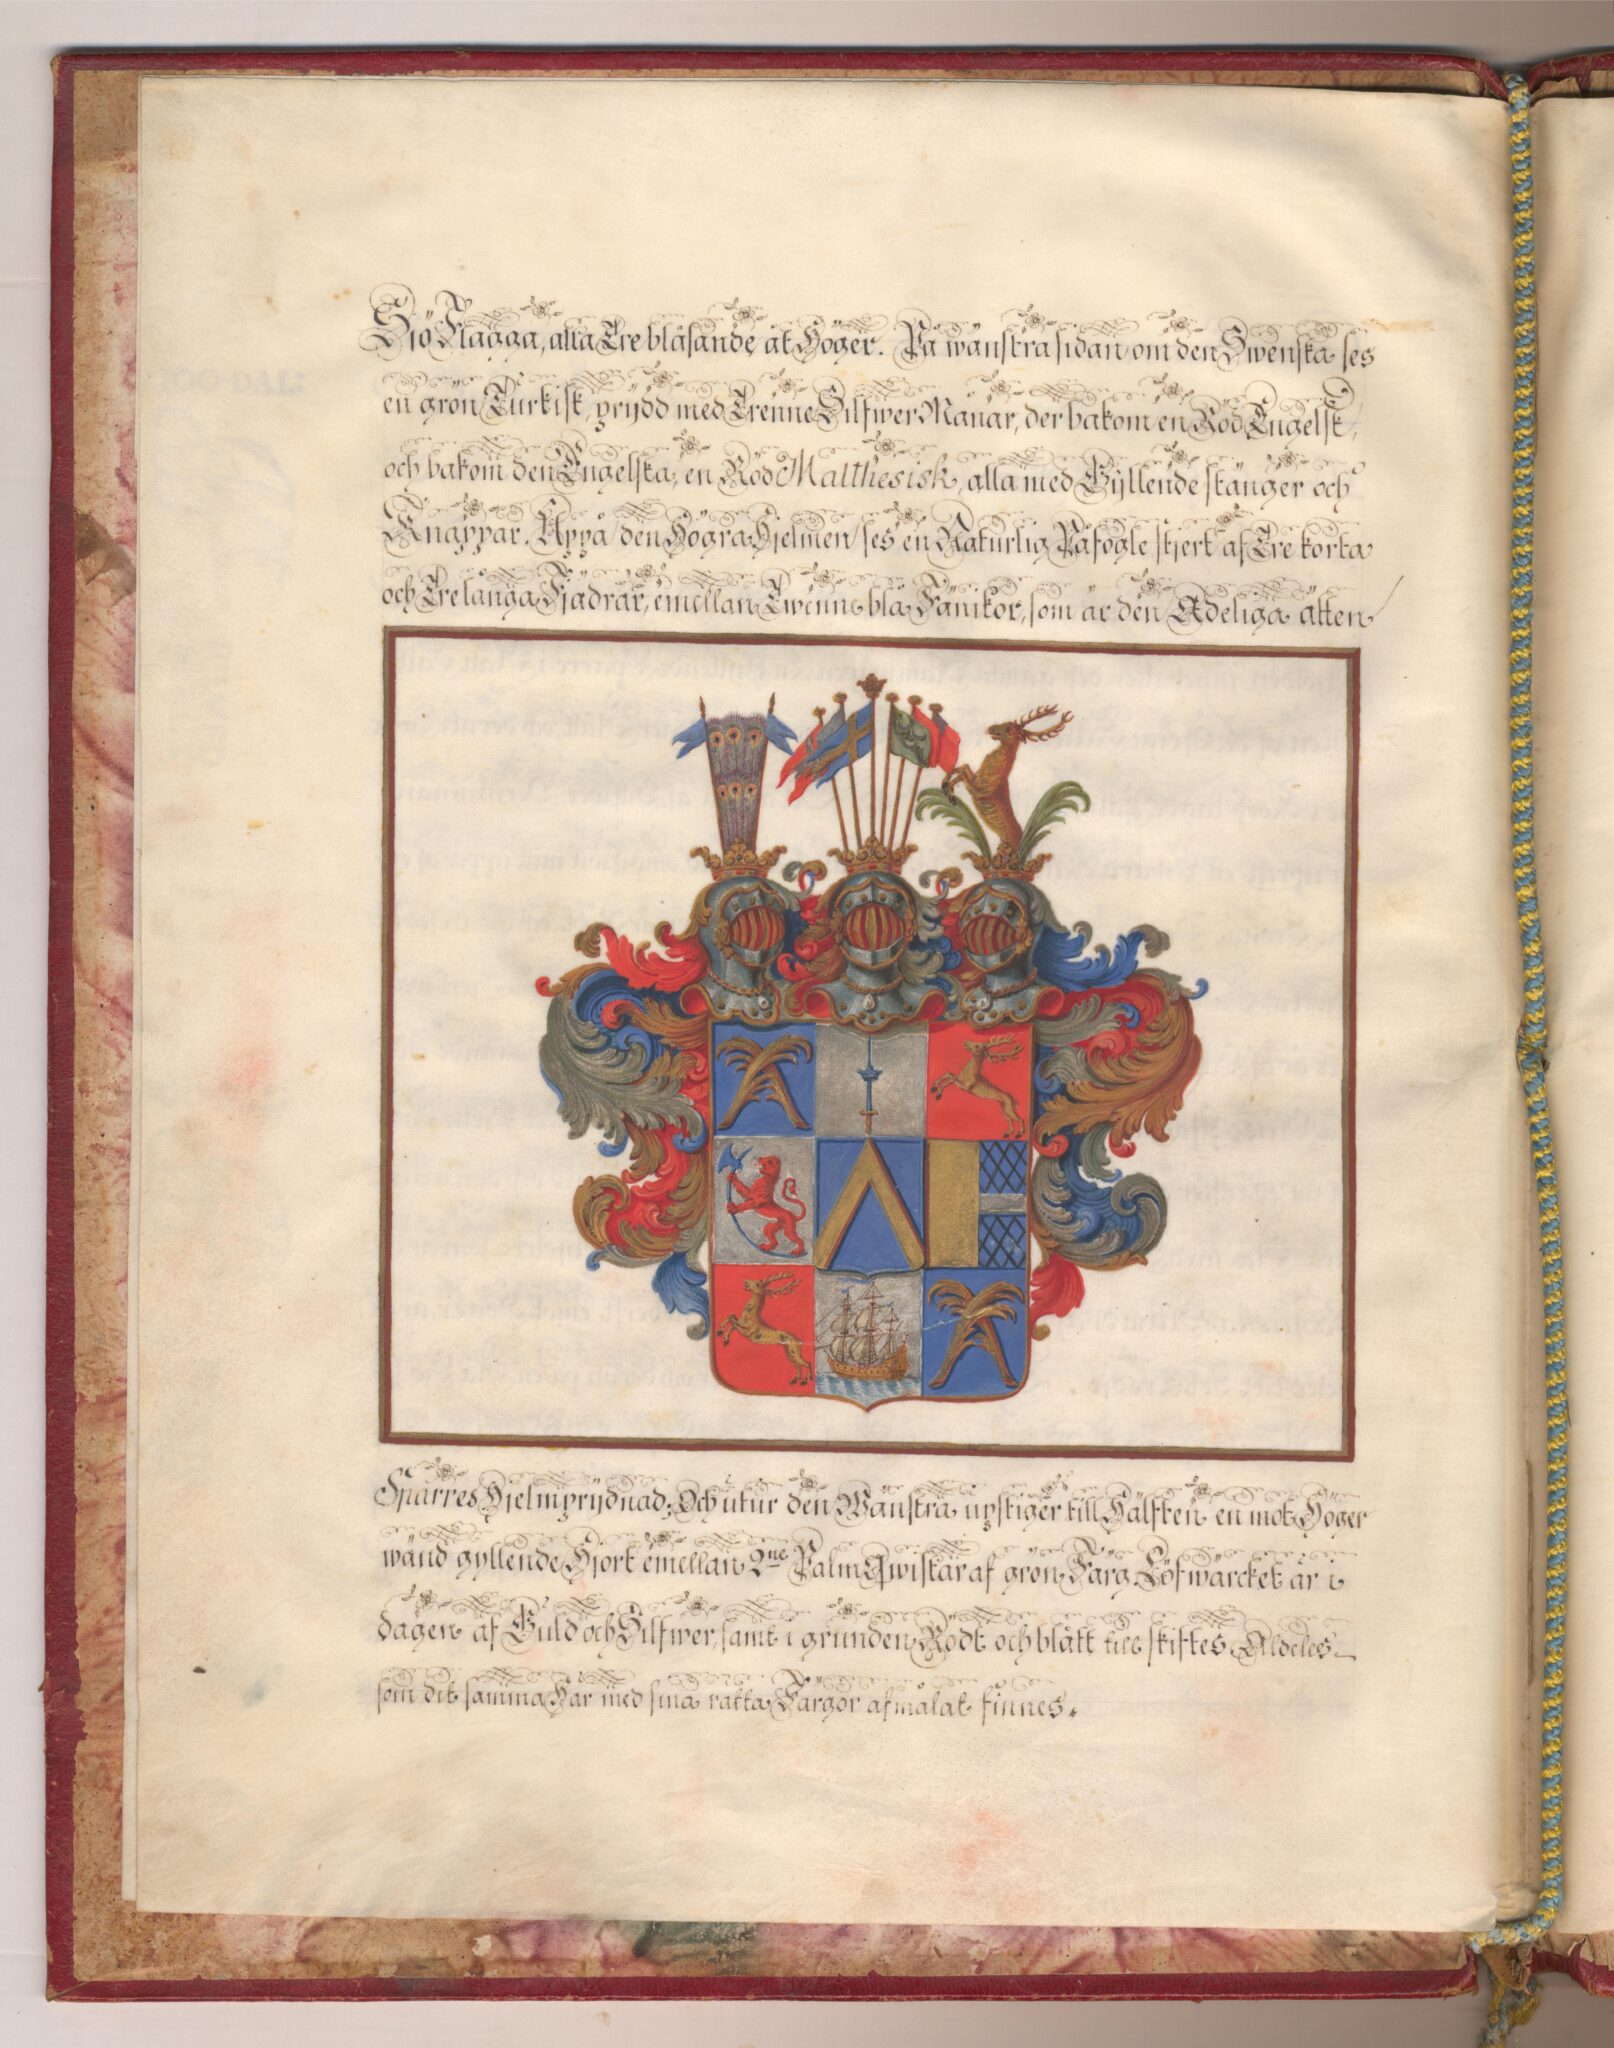 Sjö Flagga, alla Tre blåsande åt Höger. På wänstra sidan om den Swenska ses
en grön Turkisk, prydd med Trenne Silfwer Månar, der bakom en Röd Engelsk,
och bakom den Engelska, en Röd Malthesisk, alla med Gyllende stänger och
Knappar. Uppå den Högra Hjelmen ses en Naturlig Påfogle stjert af Tre korta
och Tre långa Fjädrar, emellan Twenne blå Fanikor, som är den Adeliga ätten
Sparres Hjelmprydnad; Och utur den Wänstra upstiger till Hälften en mot Höger
wänd gyllende Hjort emellan 2ne Palm Qwistar af grön Färg. Löfwärcket är i
dagen af Guld och Silfwer, samt i grunden Rödt och blått till skiftes Aldeles
som det samma Här med sina rätta Färgor afmålat finnes.